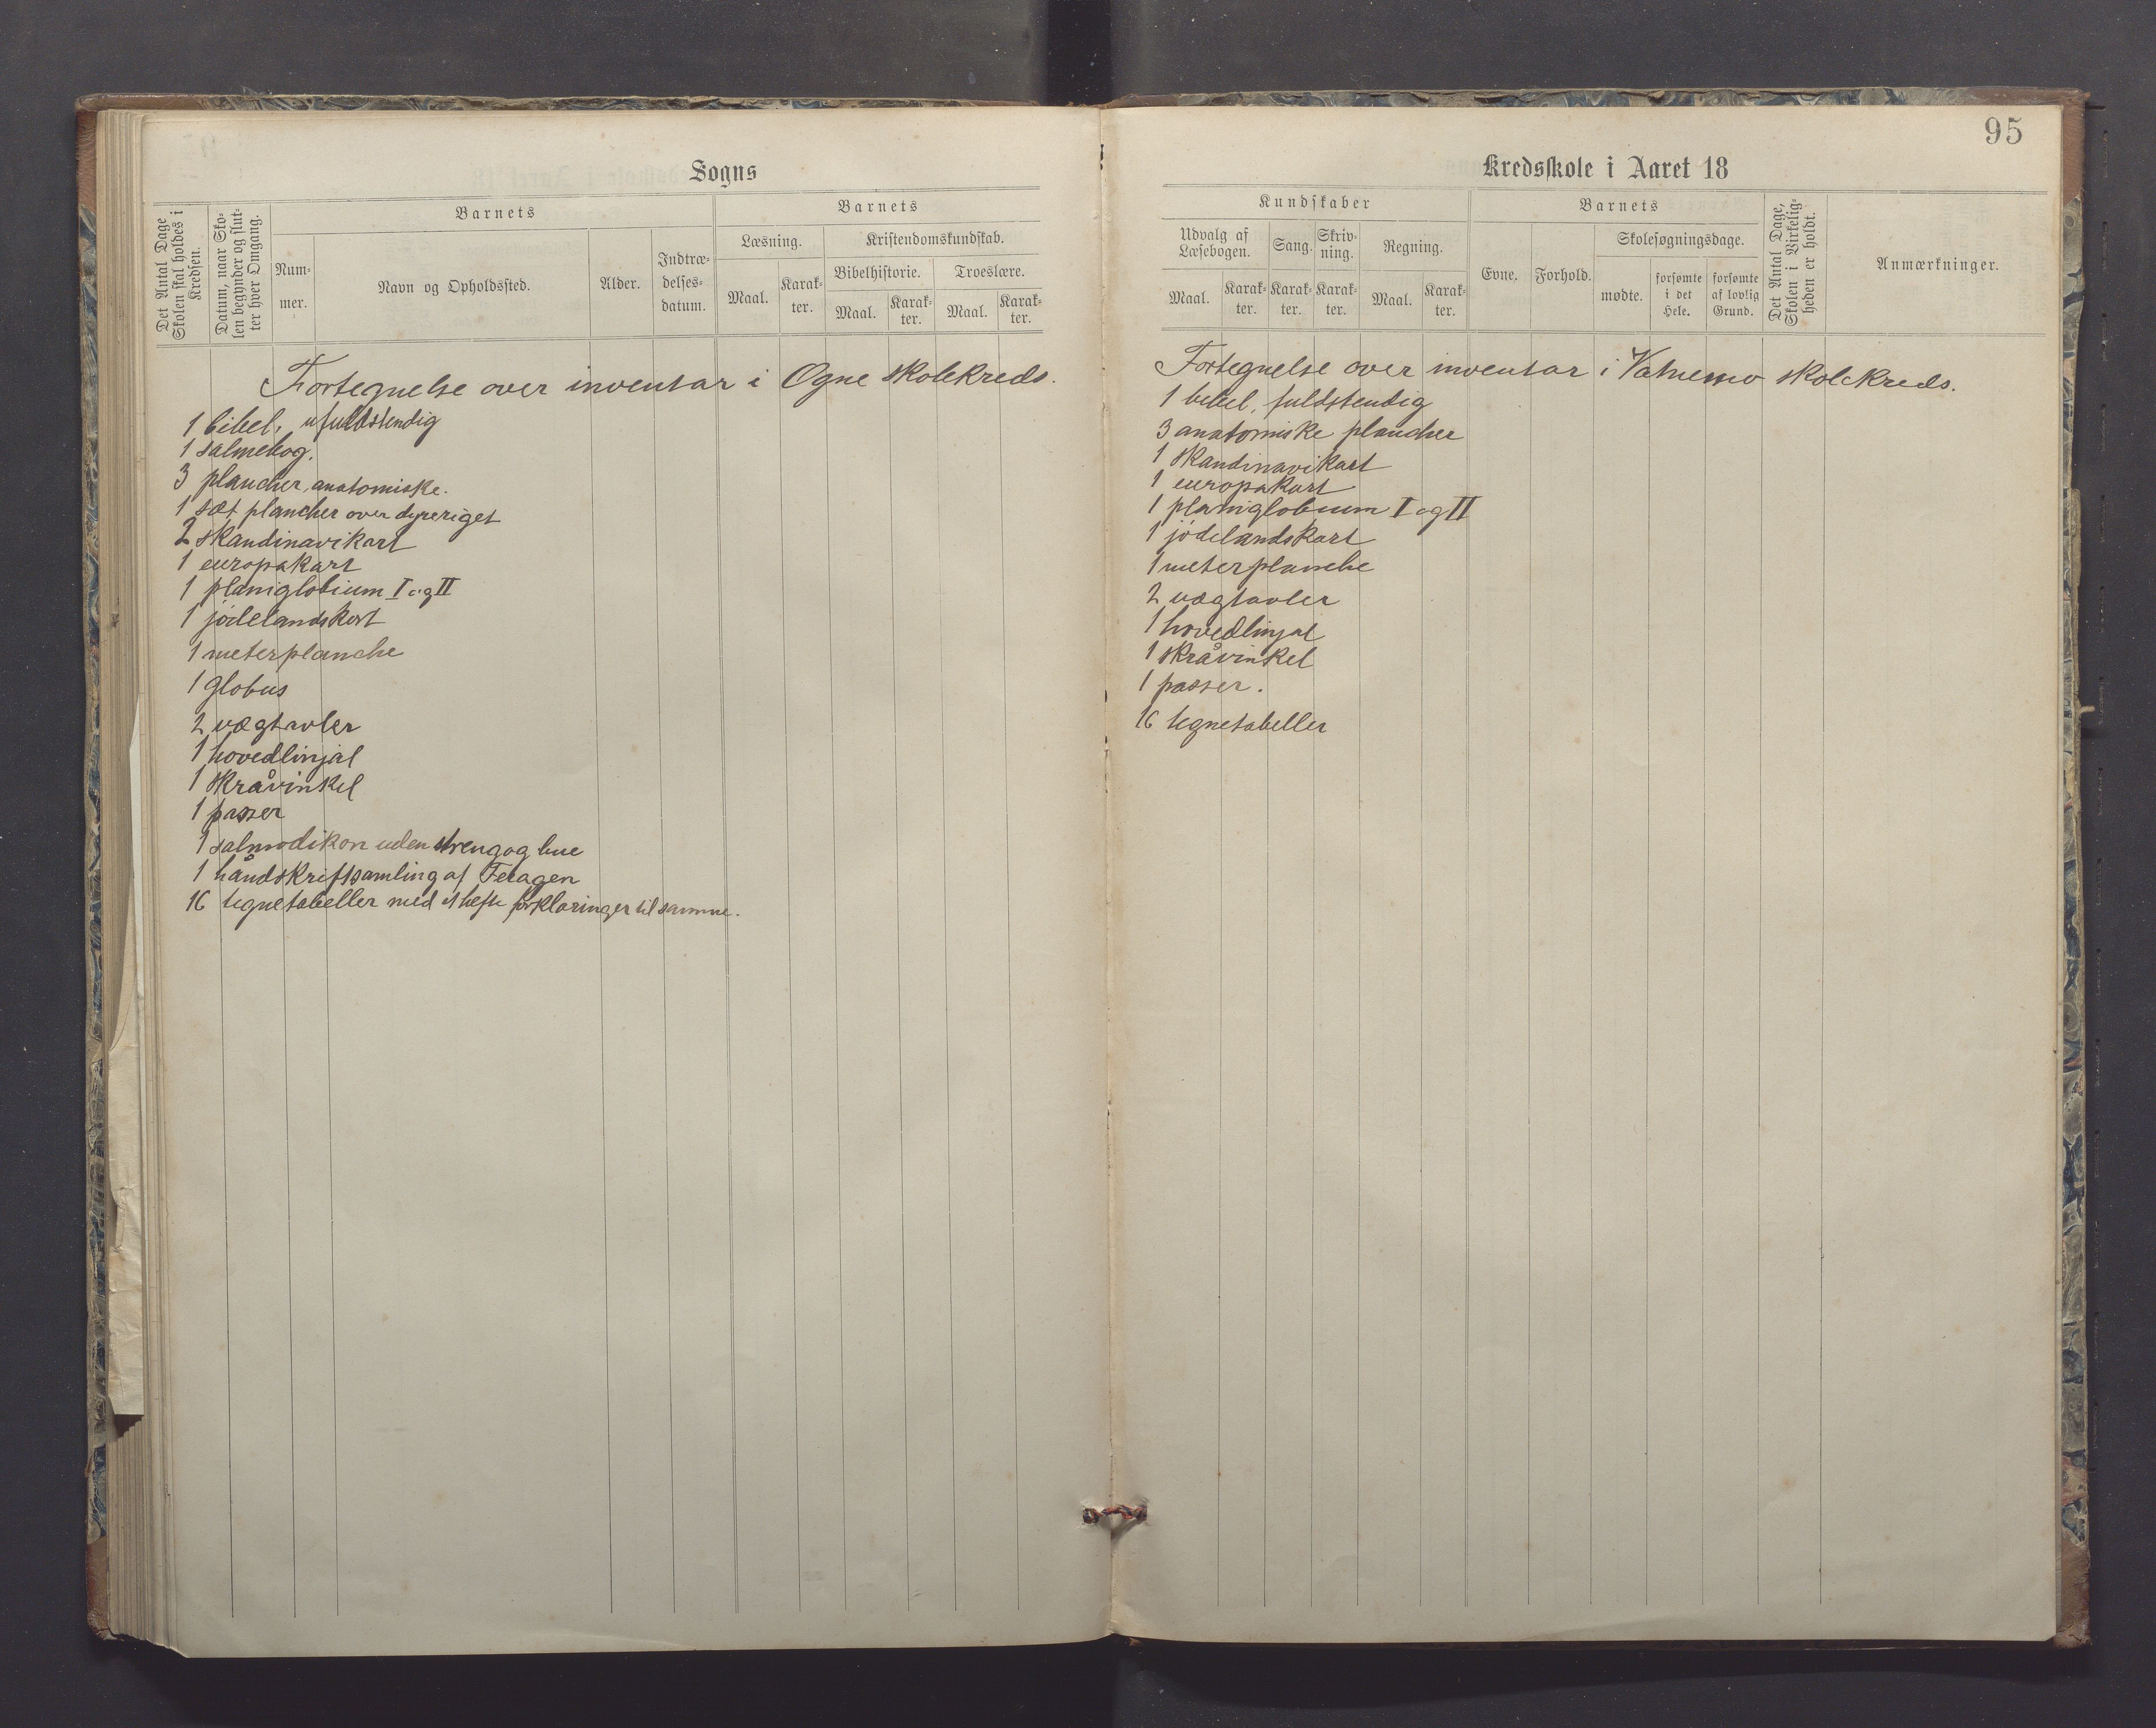 95
Sogns
Det Antal Dage Skolen skal holdes i Kredsen.
Datum, naar Skolen begynder og slutter hver Omgang.
Barnets
Nummer.
Navn og Opholdssted.
Alder.
Indtrædelsesdatum.
Barnets
Læsning.
Maal.
Karakter.
Kristendomskundskab.
Bibelhistorie.
Maal.
Karakter.
Troeslære.
Maal.
Karakter.
Fortegnelse over inventar i Ogne skolekreds.
1 bibel, ufuldstendig
1 salmebog.
3 plancher, anatomiske.
1 sæt plancher over dyreriget
2 skandinavikart
1 europakart
1 planiglobium I og II
1 jødelandskart
1 meterplanche
1 globus
2 vægtavler
1 hovedlinjal
1 skråvinkel
1 passer
1 salmodikon uden streng og bue
1 håndskriftsamling af Feragen
16 tegnetabeller med et hefte forklaringer til samme.
Kredsskole i Aaret 18
Kundskaber
Udvalg af Læsebogen.
Maal.
Karakter.
Sang.
Karakter.
Skrivning.
Karakter.
Regning.
Maal.
Karakter.
Barnets
Evne.
Forhold.
Skolesøgningsdage.
mødte.
forsømte i det Hele.
forsømte af lovlig Grund.
Det Antal Dage, Skolen i Virkeligheden er holdt.
Anmærkninger.
Fortegnelse over inventar i Vatnemo skolekreds.
1 bibel, fuldstendig
3 anatomiske plancher
1 skandinavikart
1 europakart
1 planiglobium I og II
1 jødelandskart
1 meterplanche
2 vægtavler
1 hovedlinjal
1 skråvinkel
1 passer.
16 tegnetabeller